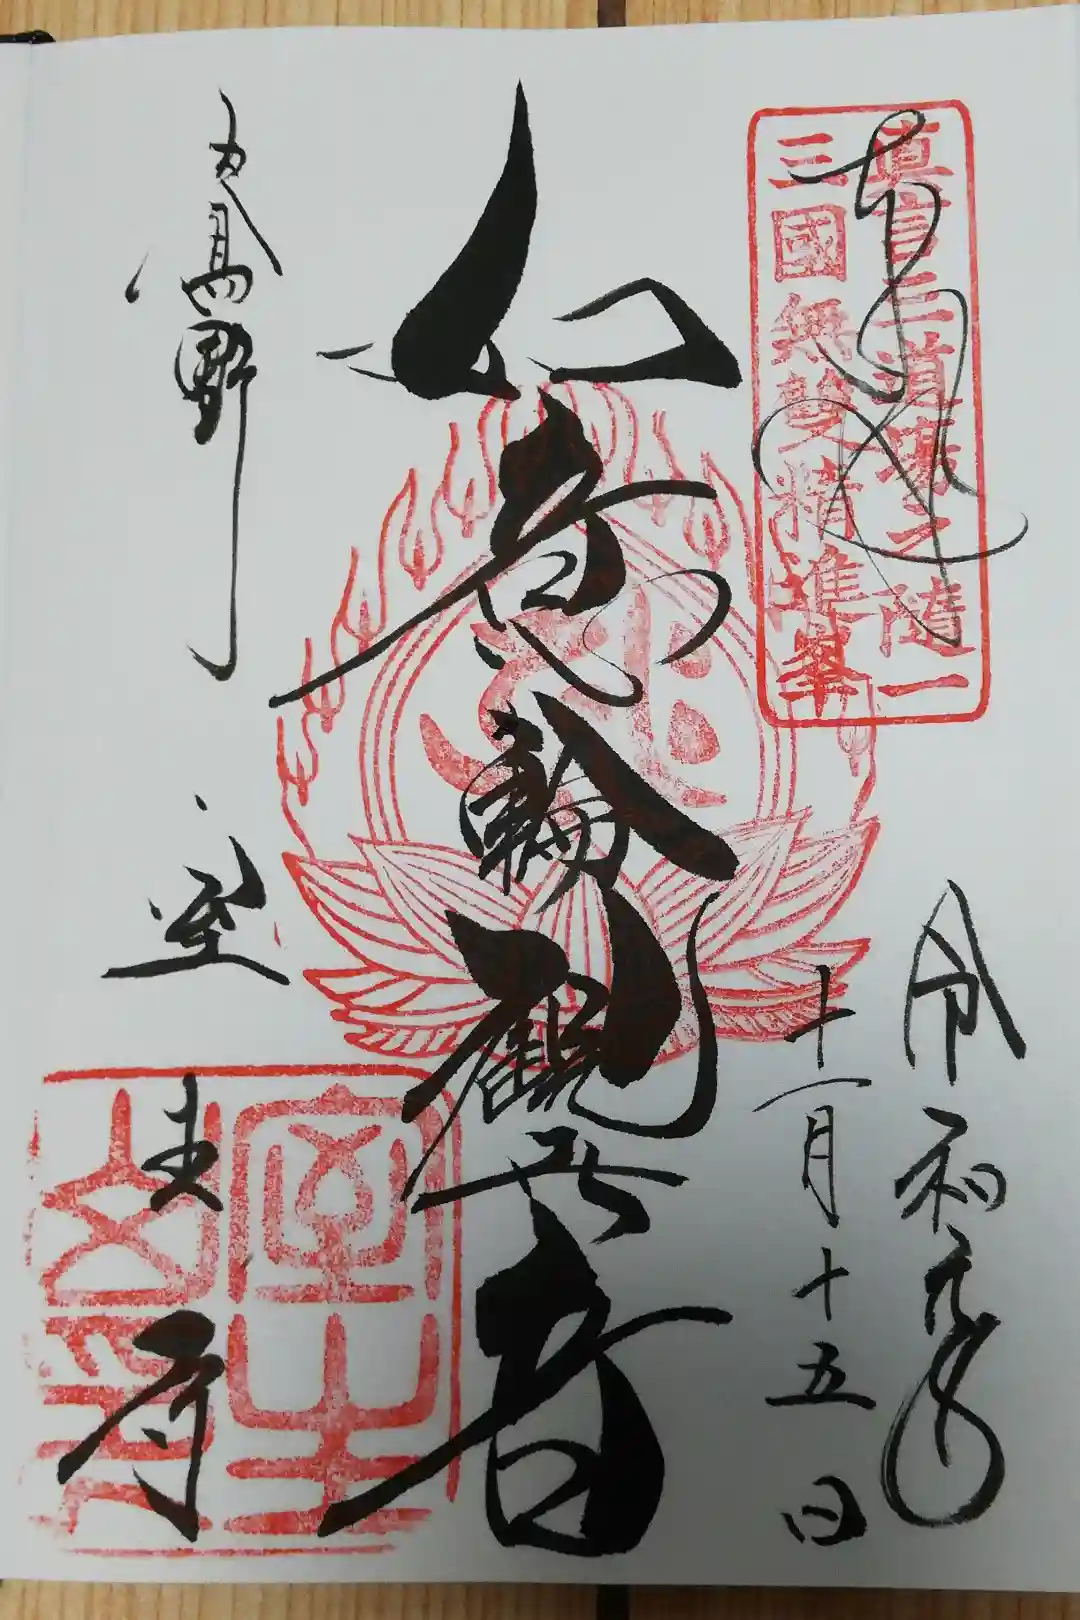 奉拝
真言三道場之随一
三國無雙精進峯
令和元年
十一月十五日
如意輪観世音
女人高野
室生寺